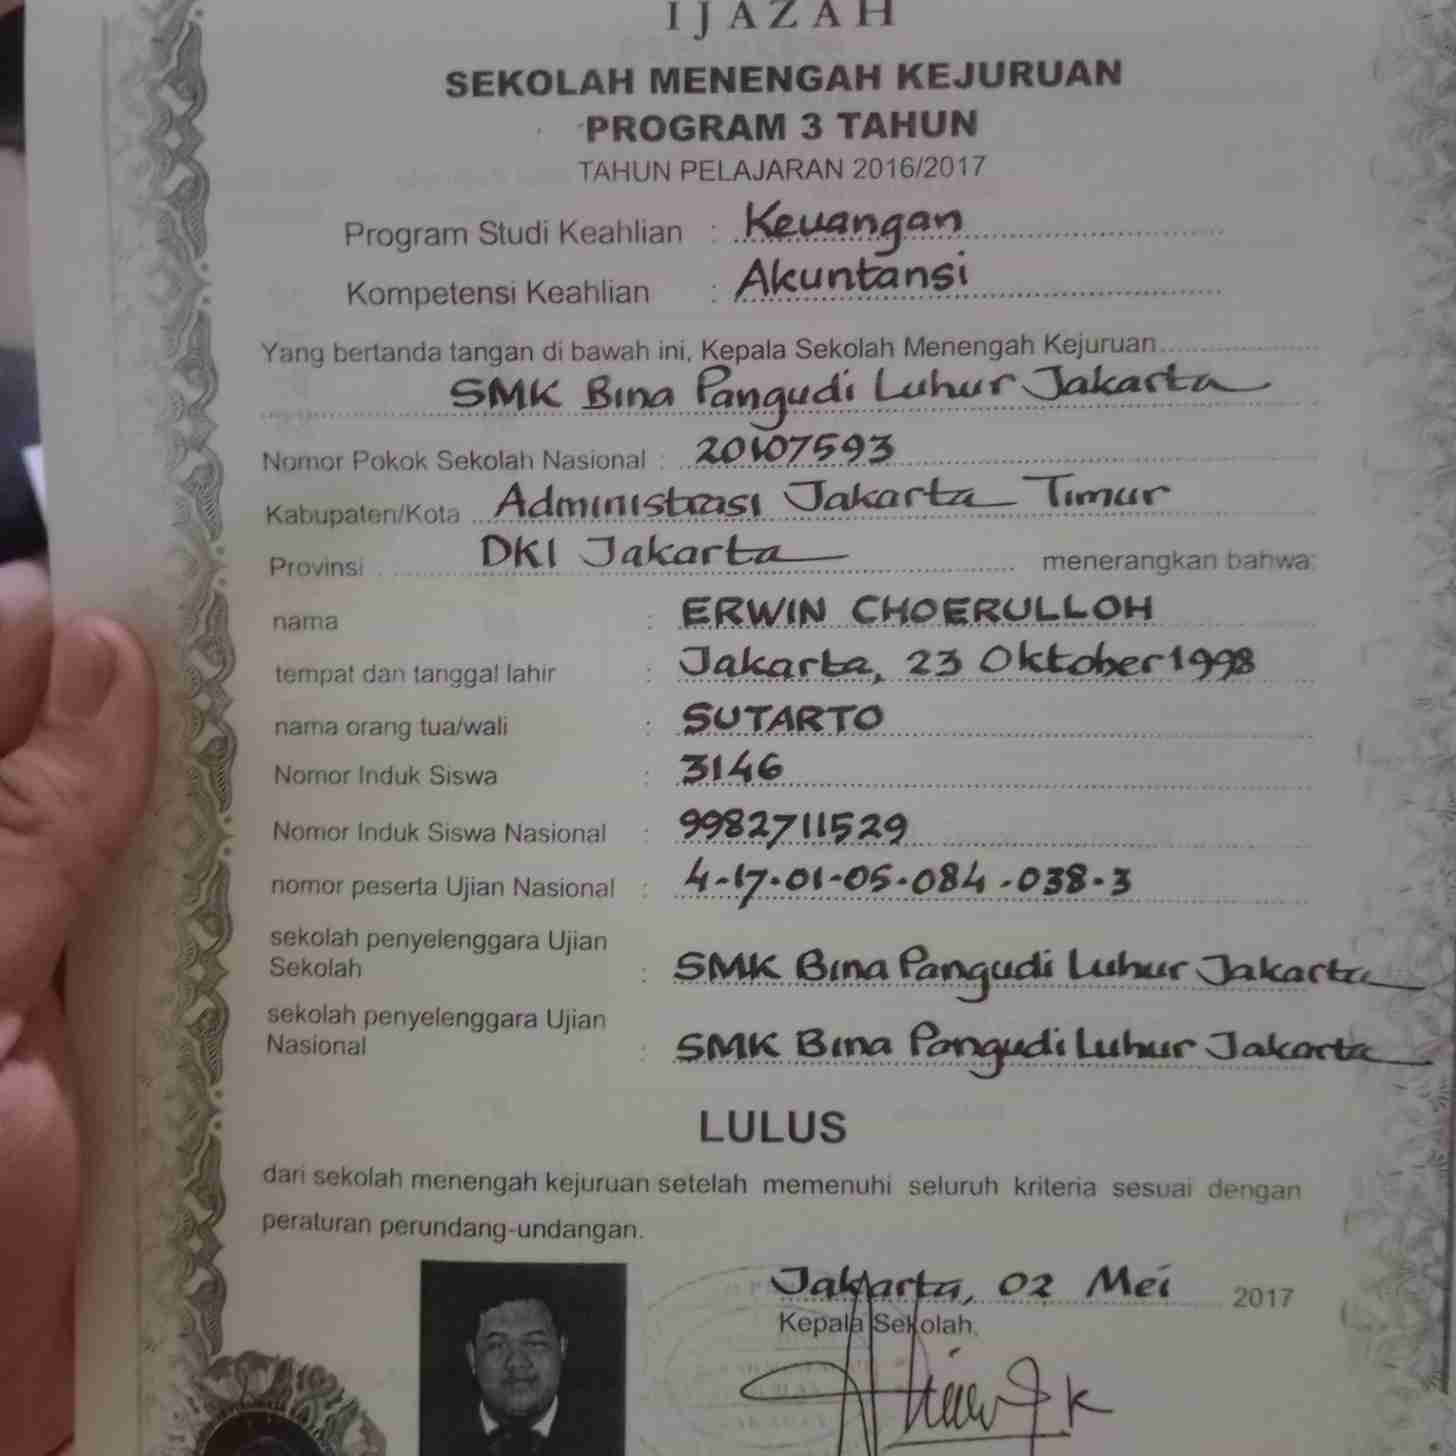 IJAZAH
SEKOLAH MENENGAH KEJURUAN
PROGRAM 3 TAHUN
TAHUN PELAJARAN 2016/2017
Program Studi Keahlian : Keuangan
Kompetensi Keahlian : Akuntansi
Yang bertanda tangan di bawah ini, Kepala Sekolah Menengah Kejuruan
SMK Bina Pangudi Luhur Jakarta
Nomor Pokok Sekolah Nasional : 20107593
Kabupaten/Kota Administrasi Jakarta Timur
Provinsi DKI Jakarta menerangkan bahwa:
nama : ERWIN CHOERULLOH
tempat dan tanggal lahir : Jakarta, 23 Oktober 1998
nama orang tua/wali : SUTARTO
Nomor Induk Siswa : 3146
Nomor Induk Siswa Nasional : 9982711529
nomor peserta Ujian Nasional : 4-17-01-05-084-038-3
sekolah penyelenggara Ujian
Sekolah : SMK Bina Pangudi Luhur Jakarta
sekolah penyelenggara Ujian
Nasional : SMK Bina Pangudi Luhur Jakarta
LULUS
dari sekolah menengah kejuruan setelah memenuhi seluruh kriteria sesuai dengan
peraturan perundang-undangan.
Jakarta, 02 Mei 2017
Kepala Sekolah,